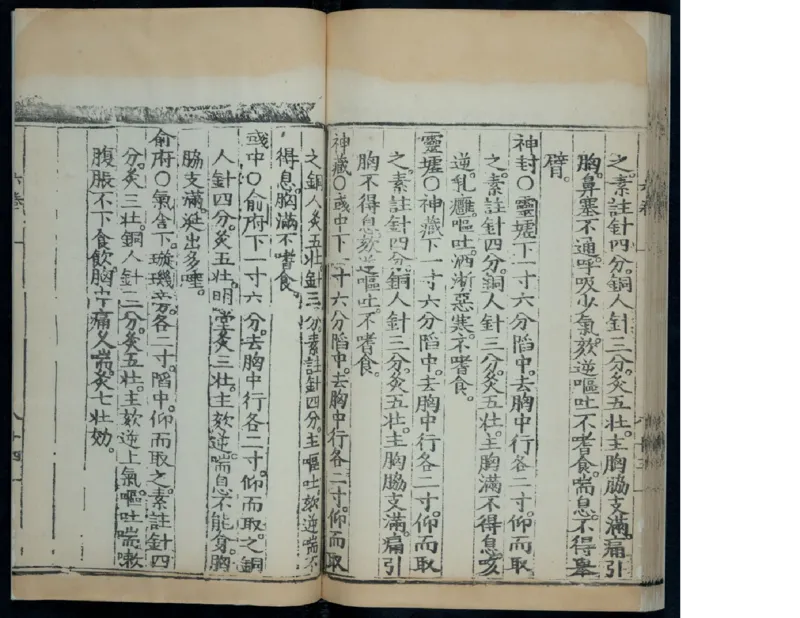 之。素註針四分。銅人針三分。灸五壯。主胸脇支滿。痛引
胸。鼻塞不通。呼吸少氣。欬逆嘔吐。不嗜食。喘息。不得舉
臂。
神封〇靈墟下一寸六分陷中。去胸中行各二寸。仰而取
之。素註針四分。銅人針三分。灸五壯。主胸滿不得息。欬
逆。乳癰。嘔吐。洒淅惡寒。不嗜食。
靈墟〇神藏下一寸六分陷中。去胸中行各二寸。仰而取
之。素註針四分。銅人針三分。灸五壯。主胸脇支滿。痛引
胸不得息。欬逆。嘔吐。不嗜食。
神藏〇彧中下一寸六分陷中。去胸中行各二寸。仰而取
之。銅人灸五壯。針三分。素註針四分。主嘔吐。欬逆喘不
得息。胸滿不嗜食。
彧中〇俞府下一寸六分。去胸中行各二寸。仰而取之。銅
人針四分。灸五壯。明堂灸三壯。主欬逆。喘息不能食。胸
脇支滿。涎出多唾。
俞府〇氣舍下。璇璣旁。各二寸。陷中。仰而取之。素註針四
分。灸三壯。銅人針三分。灸五壯。主欬逆上氣。嘔吐喘嗽
腹脹不下食飲。胸中痛。久喘。灸七壯効。
六卷
八十四